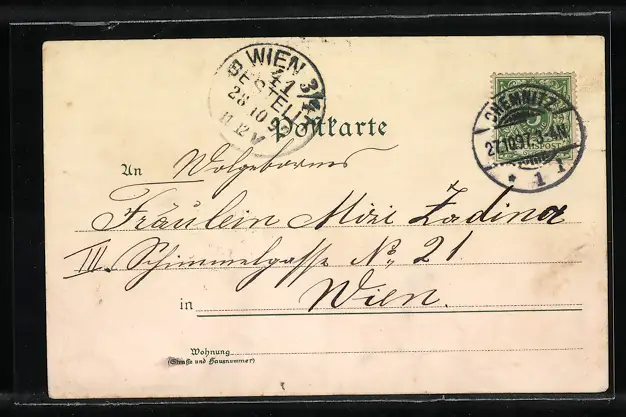 WIEN 3/4
41
BESTELLT
28 10 9
11.12 V
CHEMNITZ
27.10.97. 3-4N.
* 1 1
5
Postkarte
An Wolgebornes
Fräulein Mizi Zadina
III. Schimmelgasse No. 21
in Wien.
Wohnung
(Straße und Hausnummer)